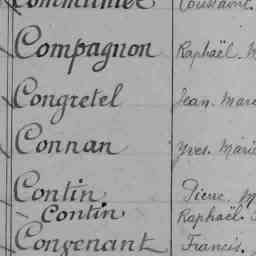 Toussaint.
Compagnon Raphaël.
Congretel Jean. Marie
Connan Yves. Marie
Contin Pierre. M
Contin Raphaël.
Convenant Francis.